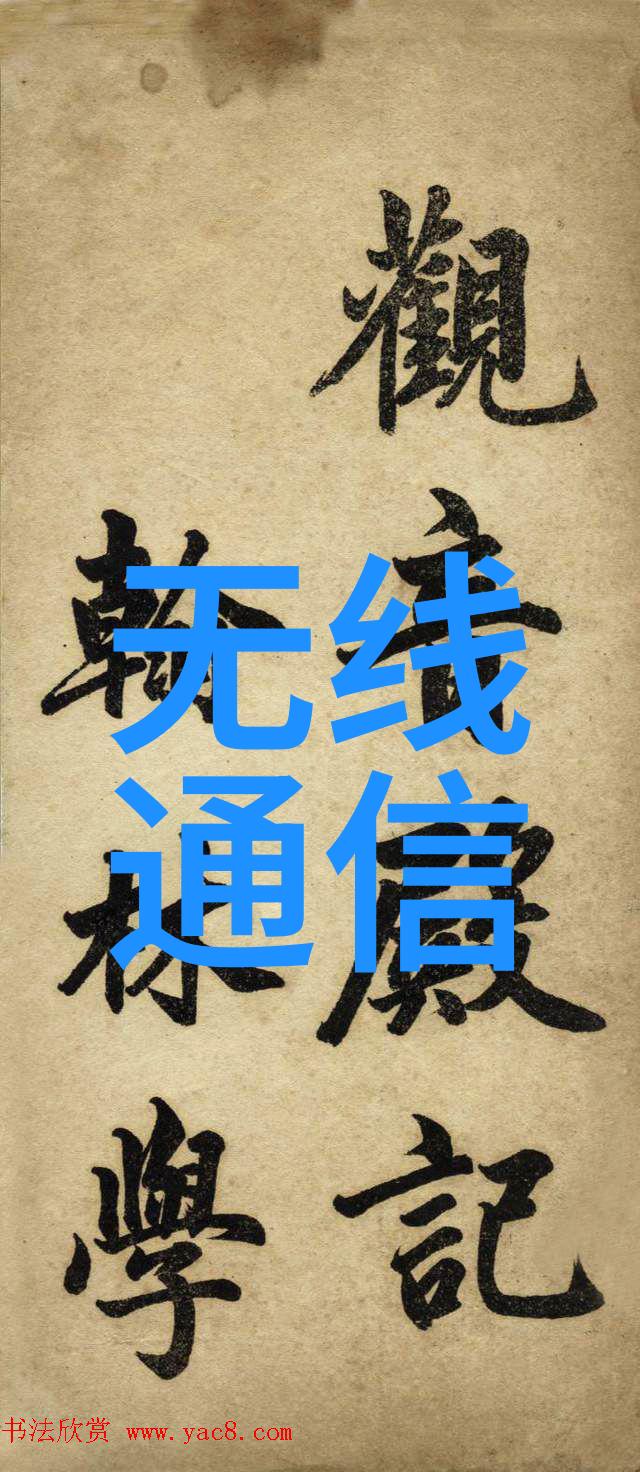 觀音殿記
翰林學
无线
通信
书法欣赏 www.yac8.com